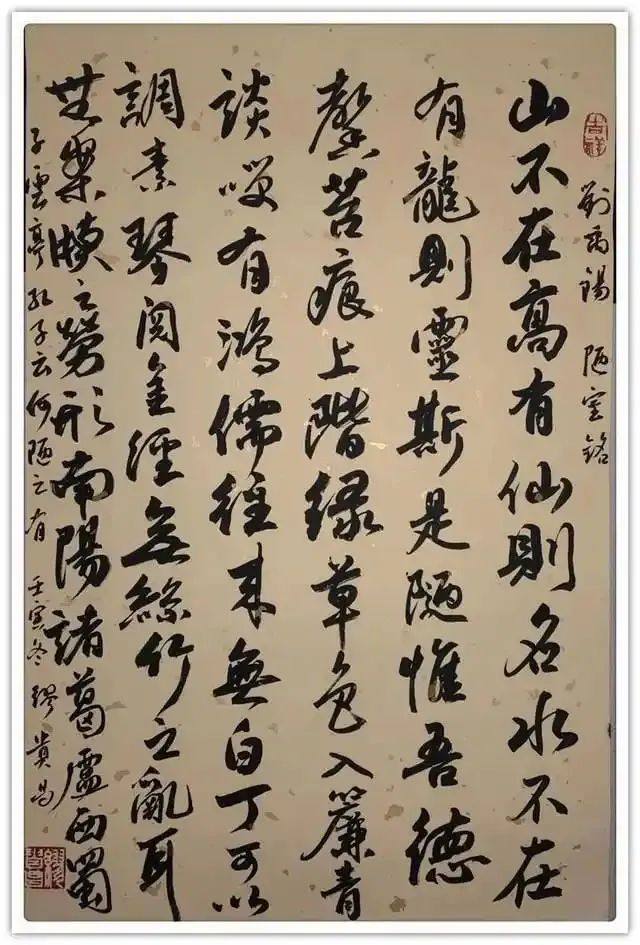 吉祥
劉禹錫 陋室銘
山不在高有仙則名水不在
有龍則靈斯是陋惟吾德
馨苔痕上階緑草色入簾青
談咲有鴻儒往來無白丁可以
調素琴閱金經無絲竹之亂耳
無案牘之勞形南陽諸葛廬西蜀
子雲亭孔子云何陋之有 壬寅冬 繆貴昌